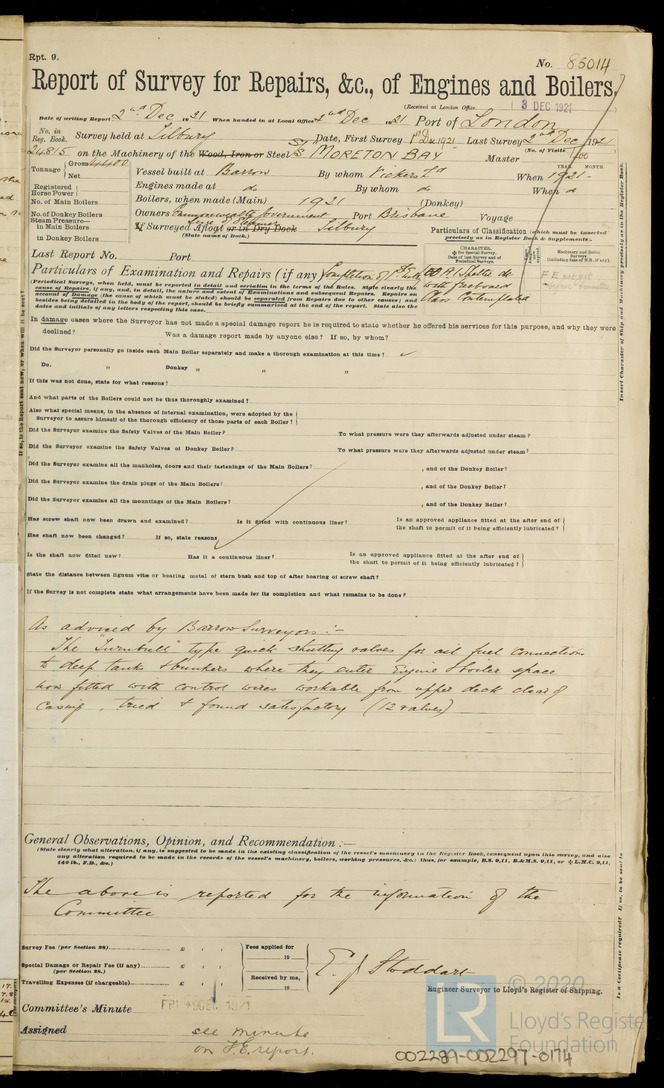 Rpt. 9.
No. 85014
Report of Survey for Repairs, &c., of Engines and Boilers.
(Received at London Office 3 DEC 1921
Date of writing Report 2nd Dec 1921 When handed in at Local Office 2nd Dec 1921 Port of London
No. in Reg. Book. Survey held at Tilbury Date, First Survey 1st Dec 1921 Last Survey 2nd Dec 1921
(No. of Visits
24815 on the Machinery of the Wood, Iron or Steel MORETON BAY Master
Tonnage Gross
Net
Vessel built at Barrow By whom Vickers Ld When 1921
YEAR. MONTH.
Registered Horse Power
Engines made at do By whom do When do
No. of Main Boilers
Boilers, when made (Main) 1921 (Donkey)
No. of Donkey Boilers
Owners Commonwealth Government Port Brisbane Voyage
Line of Steamers
Steam Pressure in Main Boilers
in Donkey Boilers
If Surveyed Afloat or in Dry Dock Tilbury
(State name of Dock.)
Particulars of Classification (which must be inserted precisely as in Register Book & Supplements).
Last Report No. Port
CHARACTER.
Particulars of Examination and Repairs (if any) Completion of
with freeboard
Class contemplated
(Periodical Surveys, when held, must be reported in detail and seriatim in the terms of the Rules. State clearly the cause of Repairs, if any, and, in detail, the nature and extent of Examinations and subsequent Repairs. Repairs on account of Damage (the cause of which must be stated) should be separated from Repairs due to other causes; and besides being detailed in the body of the report, should be briefly summarised at the end of the report. State also the dates and initials of any letters respecting this case.
In damage cases where the Surveyor has not made a special damage report he is required to state whether he offered his services for this purpose, and why they were
declined? Was a damage report made by anyone else? If so, by whom?
Did the Surveyor personally go inside each Main Boiler separately and make a thorough examination at this time?
Do. " Donkey " " "
If this was not done, state for what reasons?
And what parts of the Boilers could not be thus thoroughly examined?
Also what special means, in the absence of internal examination, were adopted by the
Surveyor to assure himself of the thorough efficiency of those parts of each Boiler?
Did the Surveyor examine the Safety Valves of the Main Boiler? To what pressure were they afterwards adjusted under steam?
Did the Surveyor examine the Safety Valves of Donkey Boiler? To what pressure were they afterwards adjusted under steam?
Did the Surveyor examine all the manholes, doors and their fastenings of the Main Boilers? , and of the Donkey Boiler?
Did the Surveyor examine the drain plugs of the Main Boilers? , and of the Donkey Boiler?
Did the Surveyor examine all the mountings of the Main Boilers? , and of the Donkey Boiler?
Has screw shaft now been drawn and examined? Is it fitted with continuous liner? Is an approved appliance fitted at the after end of
the shaft to permit of it being efficiently lubricated?
Has shaft now been changed? If so, state reasons
Is the shaft now fitted new? Has it a continuous liner? Is an approved appliance fitted at the after end of
the shaft to permit of it being efficiently lubricated?
State the distance between lignum vitæ or bearing metal of stern bush and top of after bearing of screw shaft?
If the Survey is not complete state what arrangements have been made for its completion and what remains to be done?
As advised by Barrow Surveyors:-
The "Turnbull" type quick shutting valves for oil fuel connections
to deep tanks & bunkers where they enter Engine & boiler space
now fitted with control wires workable from upper deck clear of
casing, tried & found satisfactory (12 valves)
General Observations, Opinion, and Recommendation:—
(State clearly what alteration, if any, is suggested to be made in the existing classification of the vessel's machinery in the Register Book, consequent upon this survey, and also
any alteration required to be made in the records of the vessel's machinery, boilers, working pressures, &c.: thus, for example, B.S. 9,11, B.& M.S. 9,11, or L.M.C. 9,11,
140 lb., F.D., &c.)
The above is reported for the information of the
Committee
Survey Fee (per Section 28) £ : :
Special Damage or Repair Fee (if any) £ : :
(per Section 28.)
Travelling Expenses (if chargeable) £ : :
Fees applied for
19
Received by me,
19
E. J. Stoddart
Engineer Surveyor to Lloyd's Register of Shipping.
Committee's Minute FRI 9 DEC 1921
Assigned see minute
on F.E. report.
© 2020
LR
Lloyd's Register
Foundation
002289-002297-0174